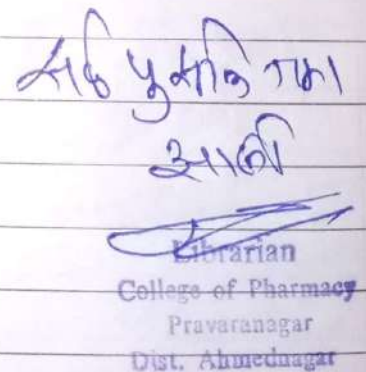 सर्व पुस्तके जमा
झाली
Librarian
College of Pharmacy
Pravaranagar
Dist. Ahmednagar